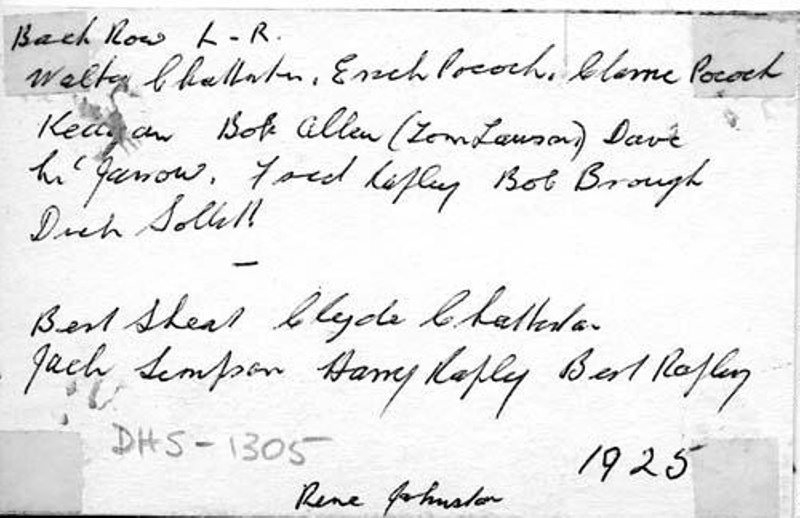 Back Row L-R.
Walter Chatterton, Erich Pocock, Clarrie Pocock
Keegan Bob Allen (Tom Lawson) Dave
Mc Jarrow, Fred Rapley Bob Brough
Dick
Bert Sheat Clyde Chatterton
Jack Simpson Harry Rapley Bert Rapley
DHS-1305
1925
Rene Johnston